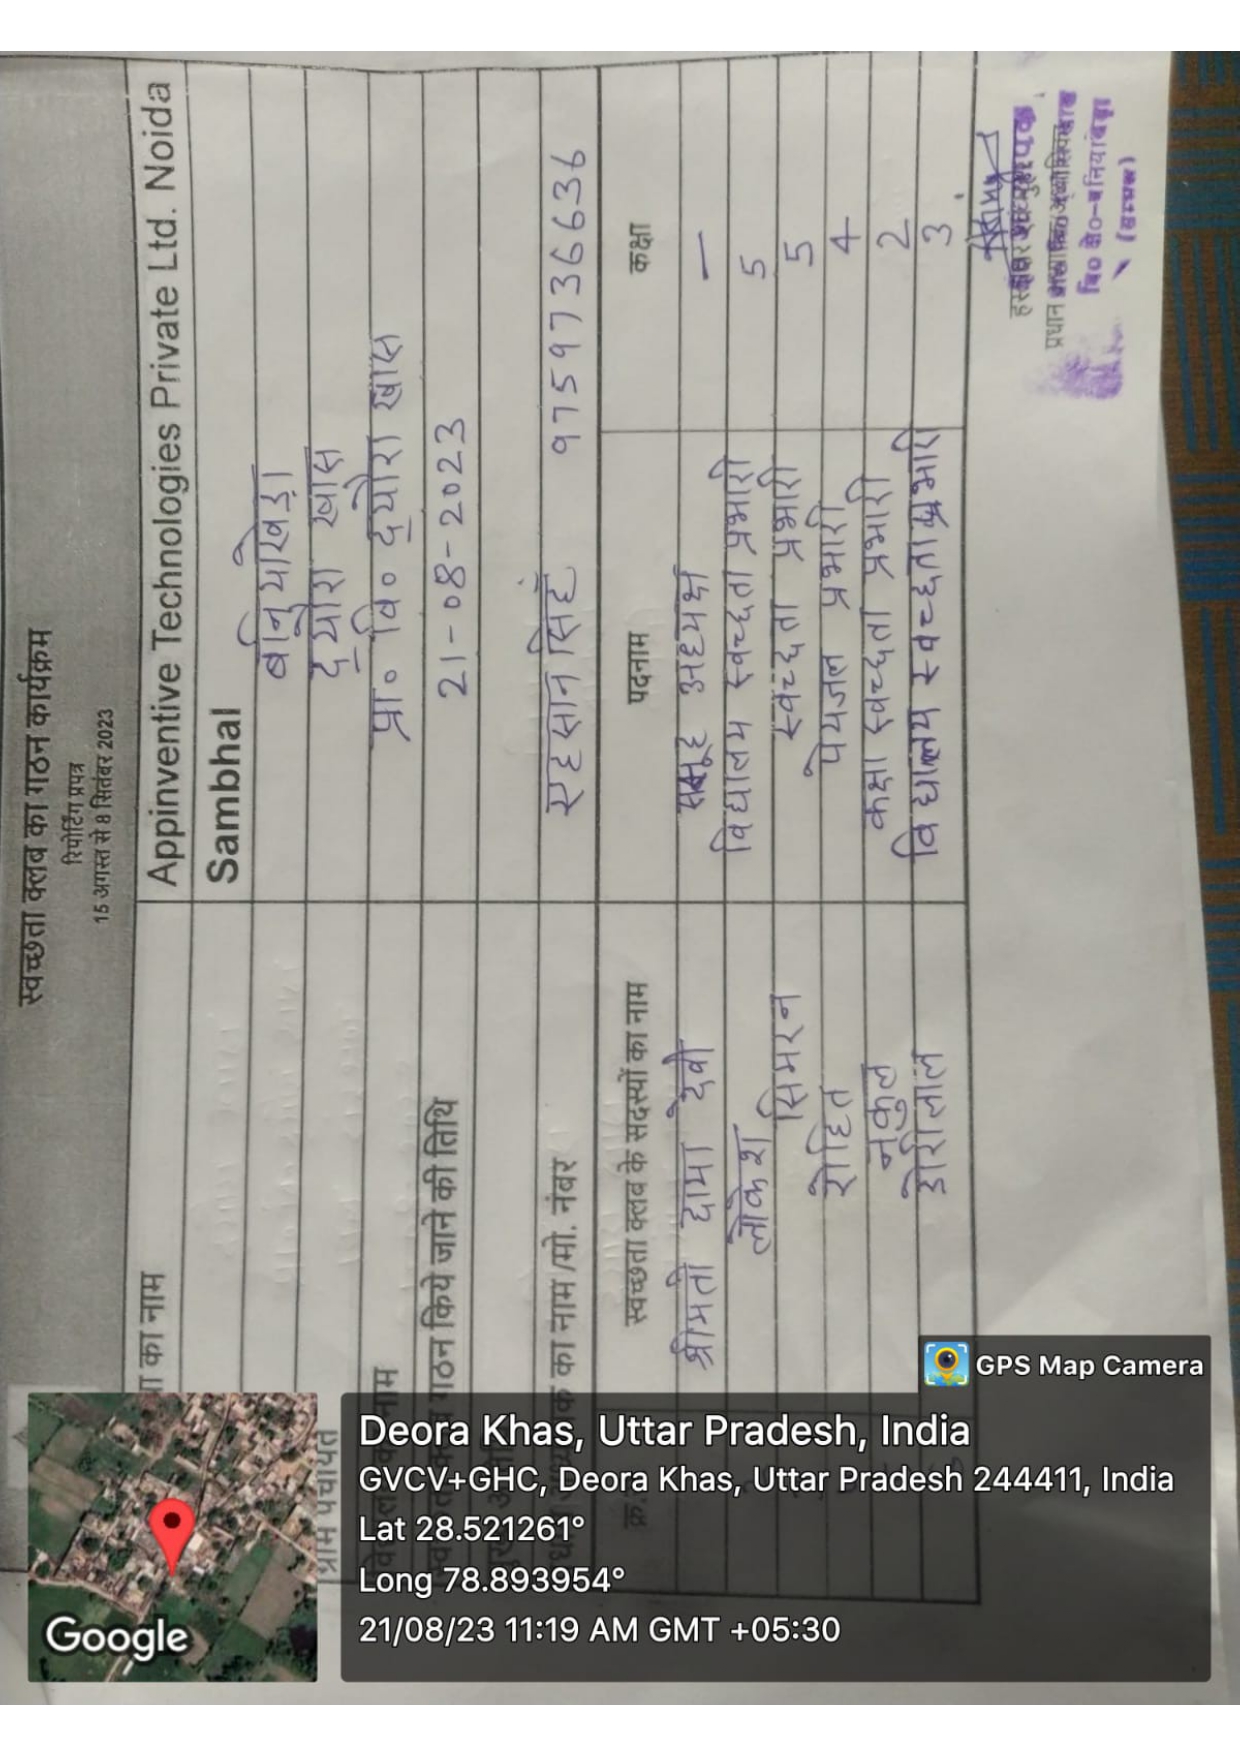 स्वच्छता क्लब का गठन कार्यक्रम
रिपोर्टिंग प्रपत्र
15 अगस्त से 8 सितंबर 2023
का नाम Appinventive Technologies Private Ltd. Noida
Sambhal
बनियाखेड़ा
ग्राम पंचायत द्योरा खास
नाम प्रा० वि० द्योरा खास
गठन किये जाने की तिथि 21-08-2023
का नाम /मो. नंबर एहसान सिंह 9759736636
क्र. स्वच्छता क्लब के सदस्यों का नाम पदनाम कक्षा
श्रीमती दामा देवी समूह अध्यक्ष —
लोकेश विद्यालय स्वच्छता प्रभारी 5
सिमरन स्वच्छता प्रभारी 5
रोहित पेयजल प्रभारी 4
नकुल कक्षा स्वच्छता प्रभारी 2
डोरीलाल विद्यालय स्वच्छता प्रभारी 3
प्रधान
वि० क्षे०-बनियाखेड़ा
(सम्भल)
GPS Map Camera
Deora Khas, Uttar Pradesh, India
GVCV+GHC, Deora Khas, Uttar Pradesh 244411, India
Lat 28.521261°
Long 78.893954°
21/08/23 11:19 AM GMT +05:30
Google